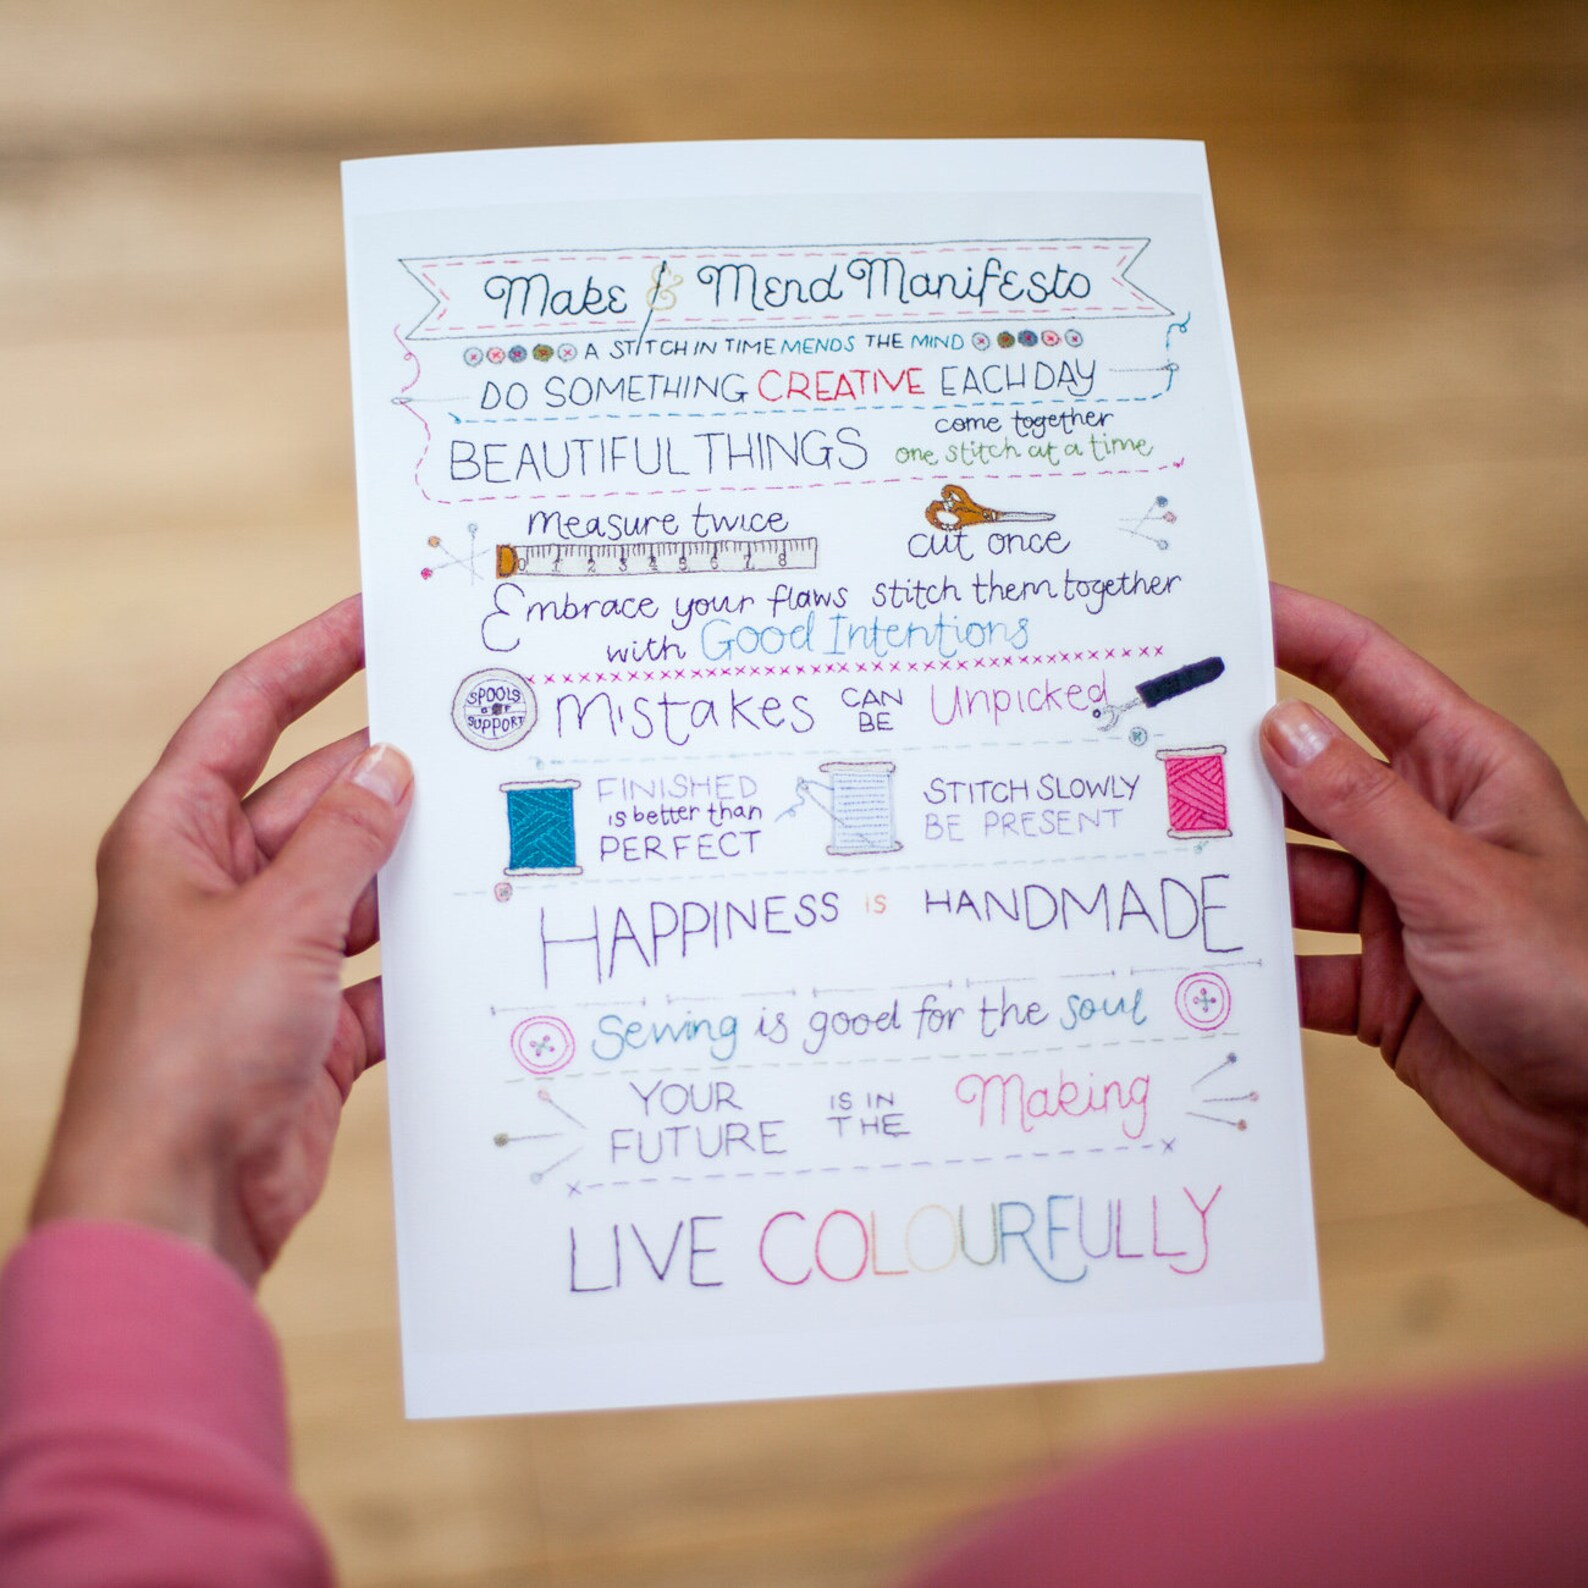 Make & Mend Manifesto
A STITCH IN TIME MENDS THE MIND
DO SOMETHING CREATIVE EACH DAY
BEAUTIFUL THINGS
come together
one stitch at a time
measure twice
cut once
0 1 2 3 4 5 6 7 8
Embrace your flaws stitch them together
with Good Intentions
SPOOLS
OF
SUPPORT
Mistakes CAN BE Unpicked
FINISHED
is better than
PERFECT
STITCH SLOWLY
BE PRESENT
HAPPINESS IS HANDMADE
Sewing is good for the soul
YOUR
FUTURE
IS IN
THE
Making
LIVE COLOURFULLY